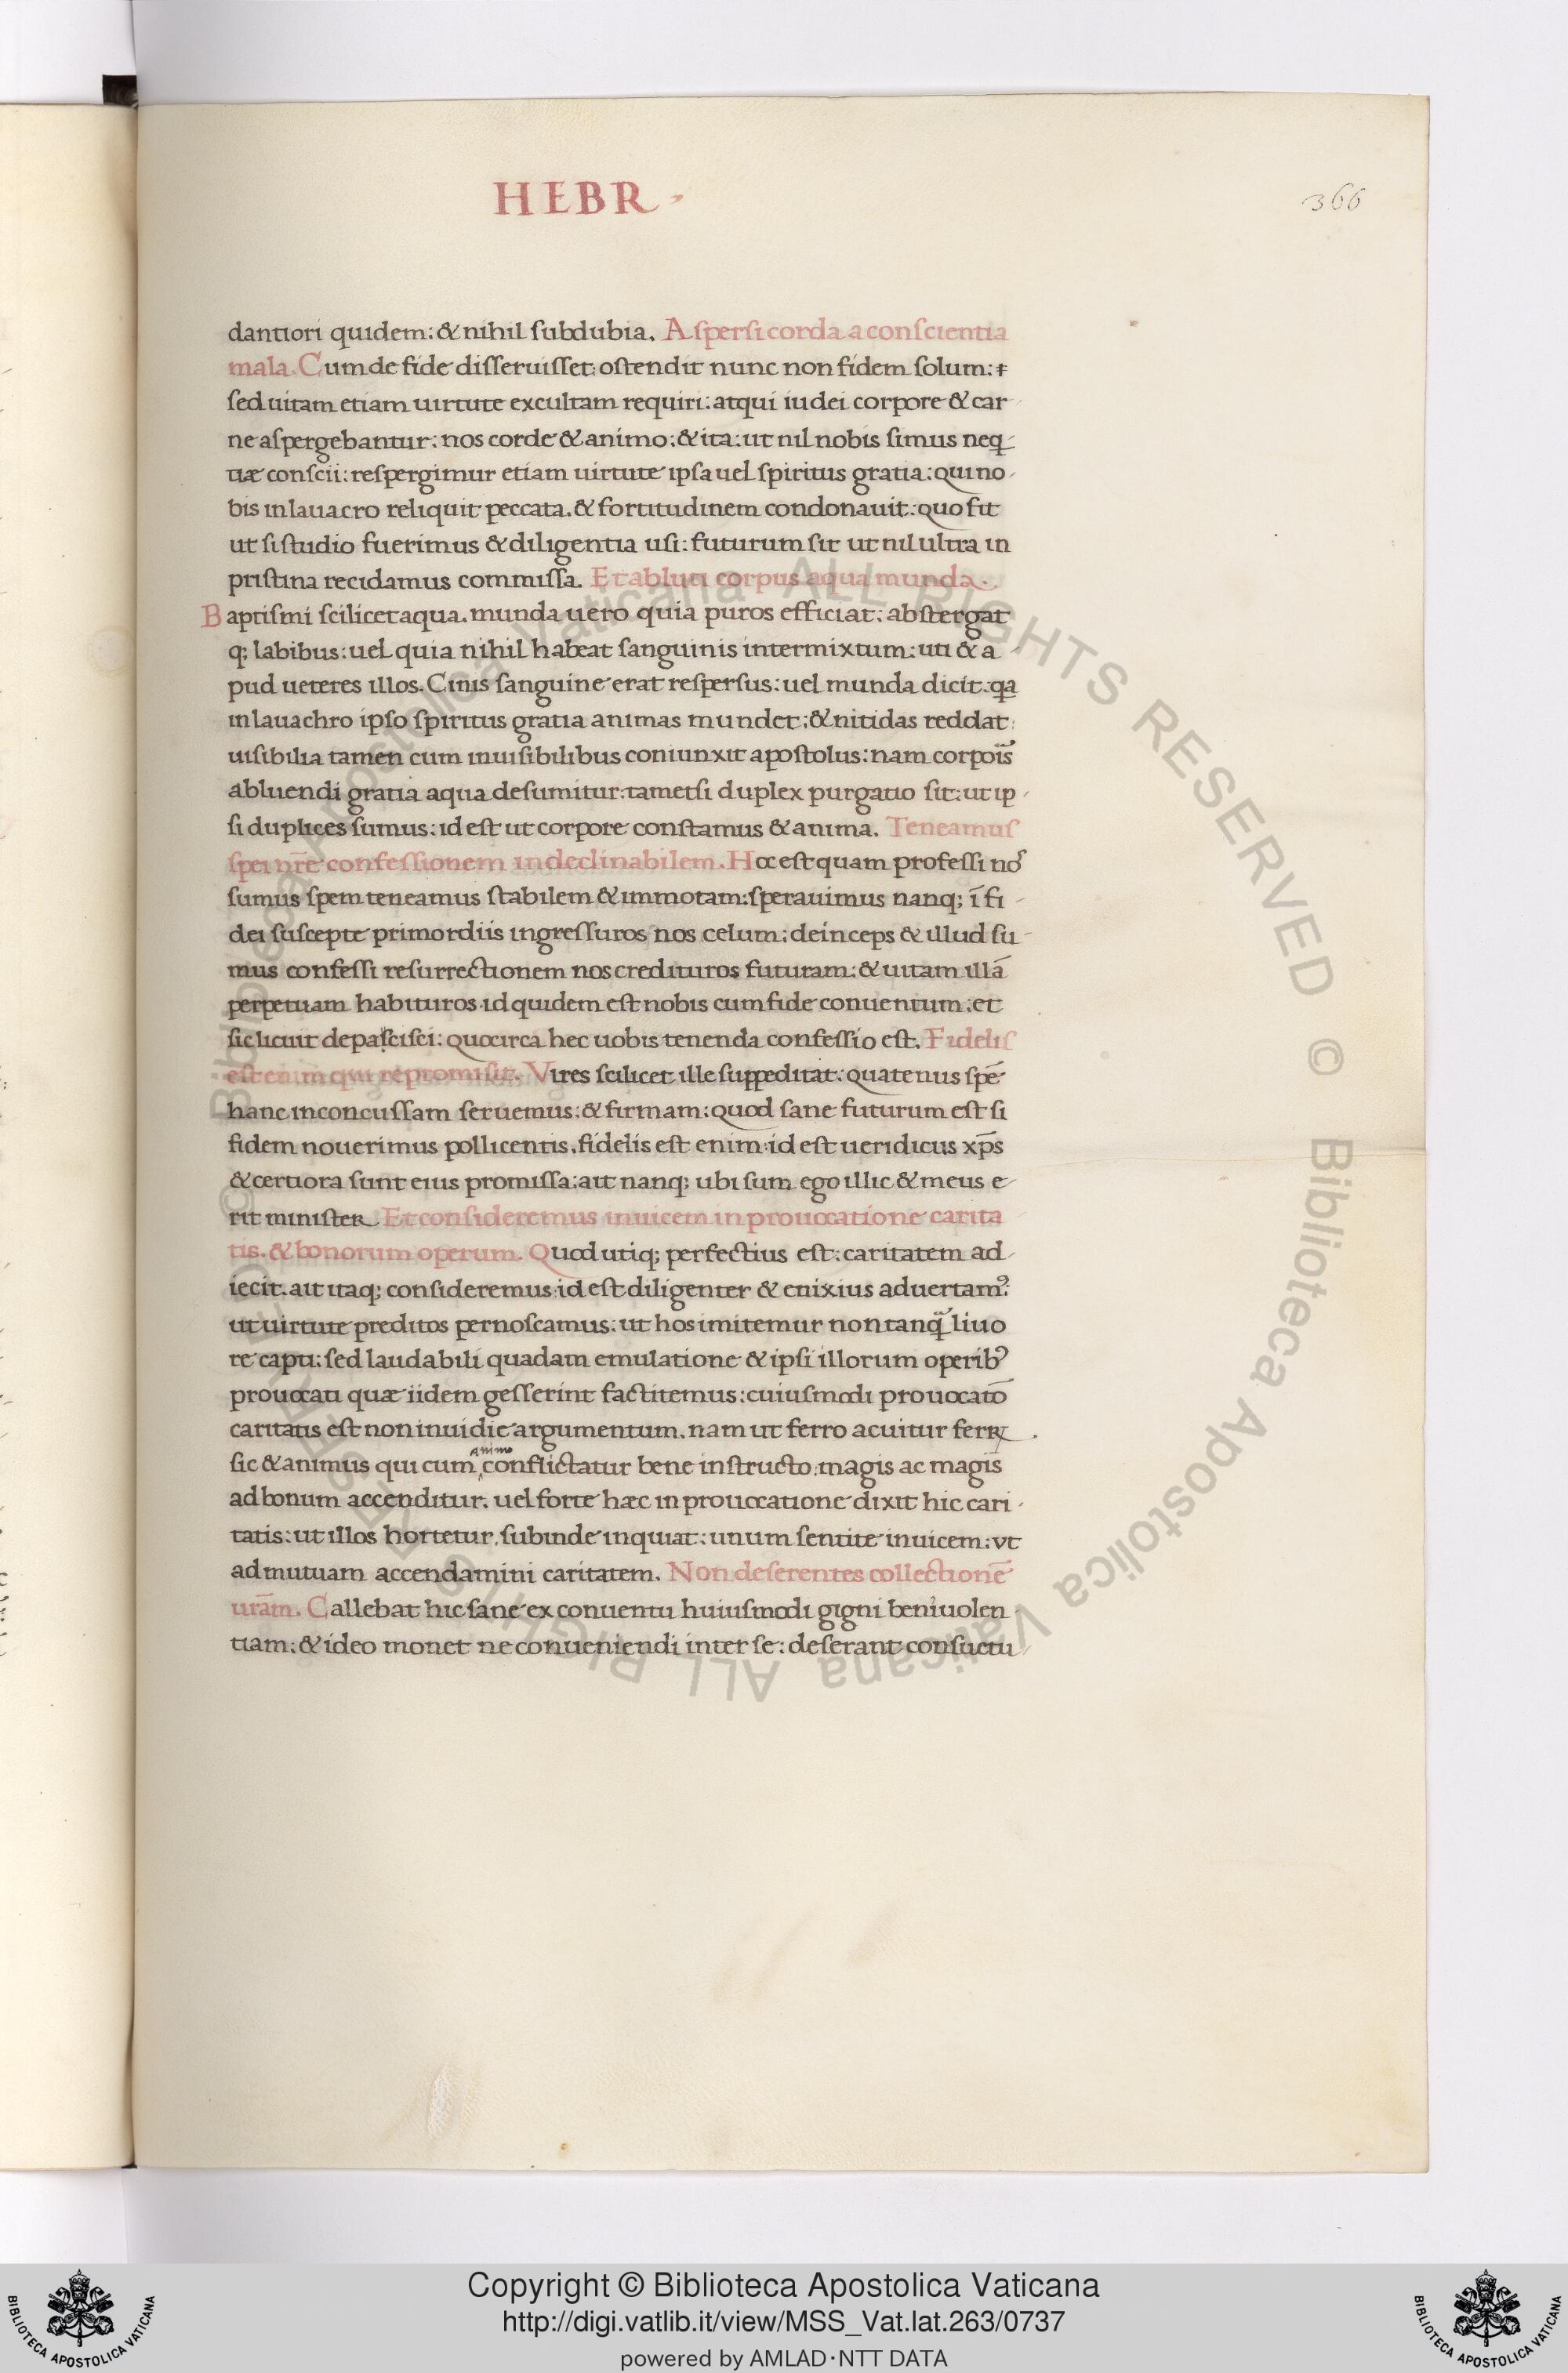 HEBR
366
dantiori quidem: & nihil subdubia. Aspersi corda a conscientia
mala. Cum de fide disseruisset: ostendit nunc non fidem solum:
sed uitam etiam uirtute excultam requiri: atqui iudei corpore & car
ne aspergebantur: nos corde & animo: & ita: ut nil nobis simus neq̱
tiæ conscii: respergimur etiam uirtute ipsa uel spiritus gratia: qui no
bis in lauacro reliquit peccata. & fortitudinem condonauit: quo fit
ut si studio fuerimus & diligentia usi: futurum sit ut nil ultra in
pristina recidamus commissa. Et abluti corpus aqua munda.
Baptismi scilicet aqua. munda uero quia puros efficiat: abstergat
q; labibus: uel quia nihil habeat sanguinis intermixtum: uti & a
pud ueteres illos. Cinis sanguine erat respersus: uel munda dicit: qa
in lauachro ipso spiritus gratia animas mundet: & nitidas reddat:
uisibilia tamen cum inuisibilibus coniunxit apostolus: nam corpois̄
abluendi gratia aqua desumitur: tametsi duplex purgatio sit: ut ip
si duplices sumus: id est ut corpore constamus & anima. Teneamus
spei nr̄e confessionem indeclinabilem. Hoc est quam professi noꝰ
sumus spem teneamus stabilem & immotam: sperauimus nanq; ī fi
dei suscepte primordiis ingressuros nos celum: deinceps & illud su
mus confessi resurrectionem nos credituros futuram: & uitam illā
perpetuam habituros id quidem est nobis cum fide conuentum: et
sic licuit depascisci: quocirca hec uobis tenenda confessio est. Fidelis
est enim qui repromisit. Vires scilicet ille suppeditat: quatenus spē
hanc inconcussam seruemus: & firmam: quod sane futurum est si
fidem nouerimus pollicentis. fidelis est enim: id est ueridicus xp̄s
& certiora sunt eius promissa: ait nanq; ubi sum ego illic & meus e
rit minister. Et consideremus inuicem in prouocatione carita
tis. & bonorum operum. Quod utiq; perfectius est: caritatem ad
iecit. ait itaq; consideremus: id est diligenter & enixius aduertamꝰ:
ut uirtute preditos pernoscamus: ut hos imitemur non tanq̄ liuo
re capti: sed laudabili quadam emulatione & ipsi illorum operibꝰ
prouocati quæ iidem gesserint factitemus: cuiusmodi prouocatō
caritatis est non inuidie argumentum. nam ut ferro acuitur ferꝝ
animo
sic & animus qui cum conflictatur bene instructo: magis ac magis
ad bonum accenditur. uel forte hæc in prouocatione dixit hic cari
tatis: ut illos hortetur. subinde inquiat: unum sentite inuicem: vt
ad mutuam accendamini caritatem. Non deserentes collectionē
urām. Callebat hic sane ex conuentu huiusmodi gigni beniuolen
tiam: & ideo monet ne conueniendi inter se: deserant consuetu
Copyright © Biblioteca Apostolica Vaticana
http://digi.vatlib.it/view/MSS_Vat.lat.263/0737
powered by AMLAD·NTT DATA